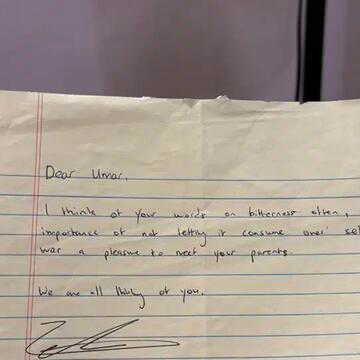 Dear Umar,
I think of your words on bitterness often,
importance of not letting it consume ones
was a pleasure to meet your parents.
We are all thinking of you.